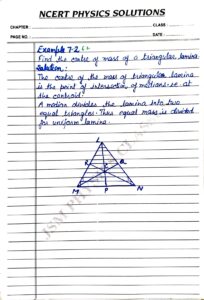 NCERT PHYSICS SOLUTIONS
CHAPTER:
CLASS:
PAGE NO.:
DATE:
Example 7.2
Find the centre of mass of a triangular lamina
Solution:
The centre of the mass of triangular lamina
is the point of intersection of medians i.e at
the centroid.
A median divides the lamina into two
equal triangles. Thus equal mass is divided
for uniform lamina.
L
R Q
G
M P N
JSM PHYSICS CLASS